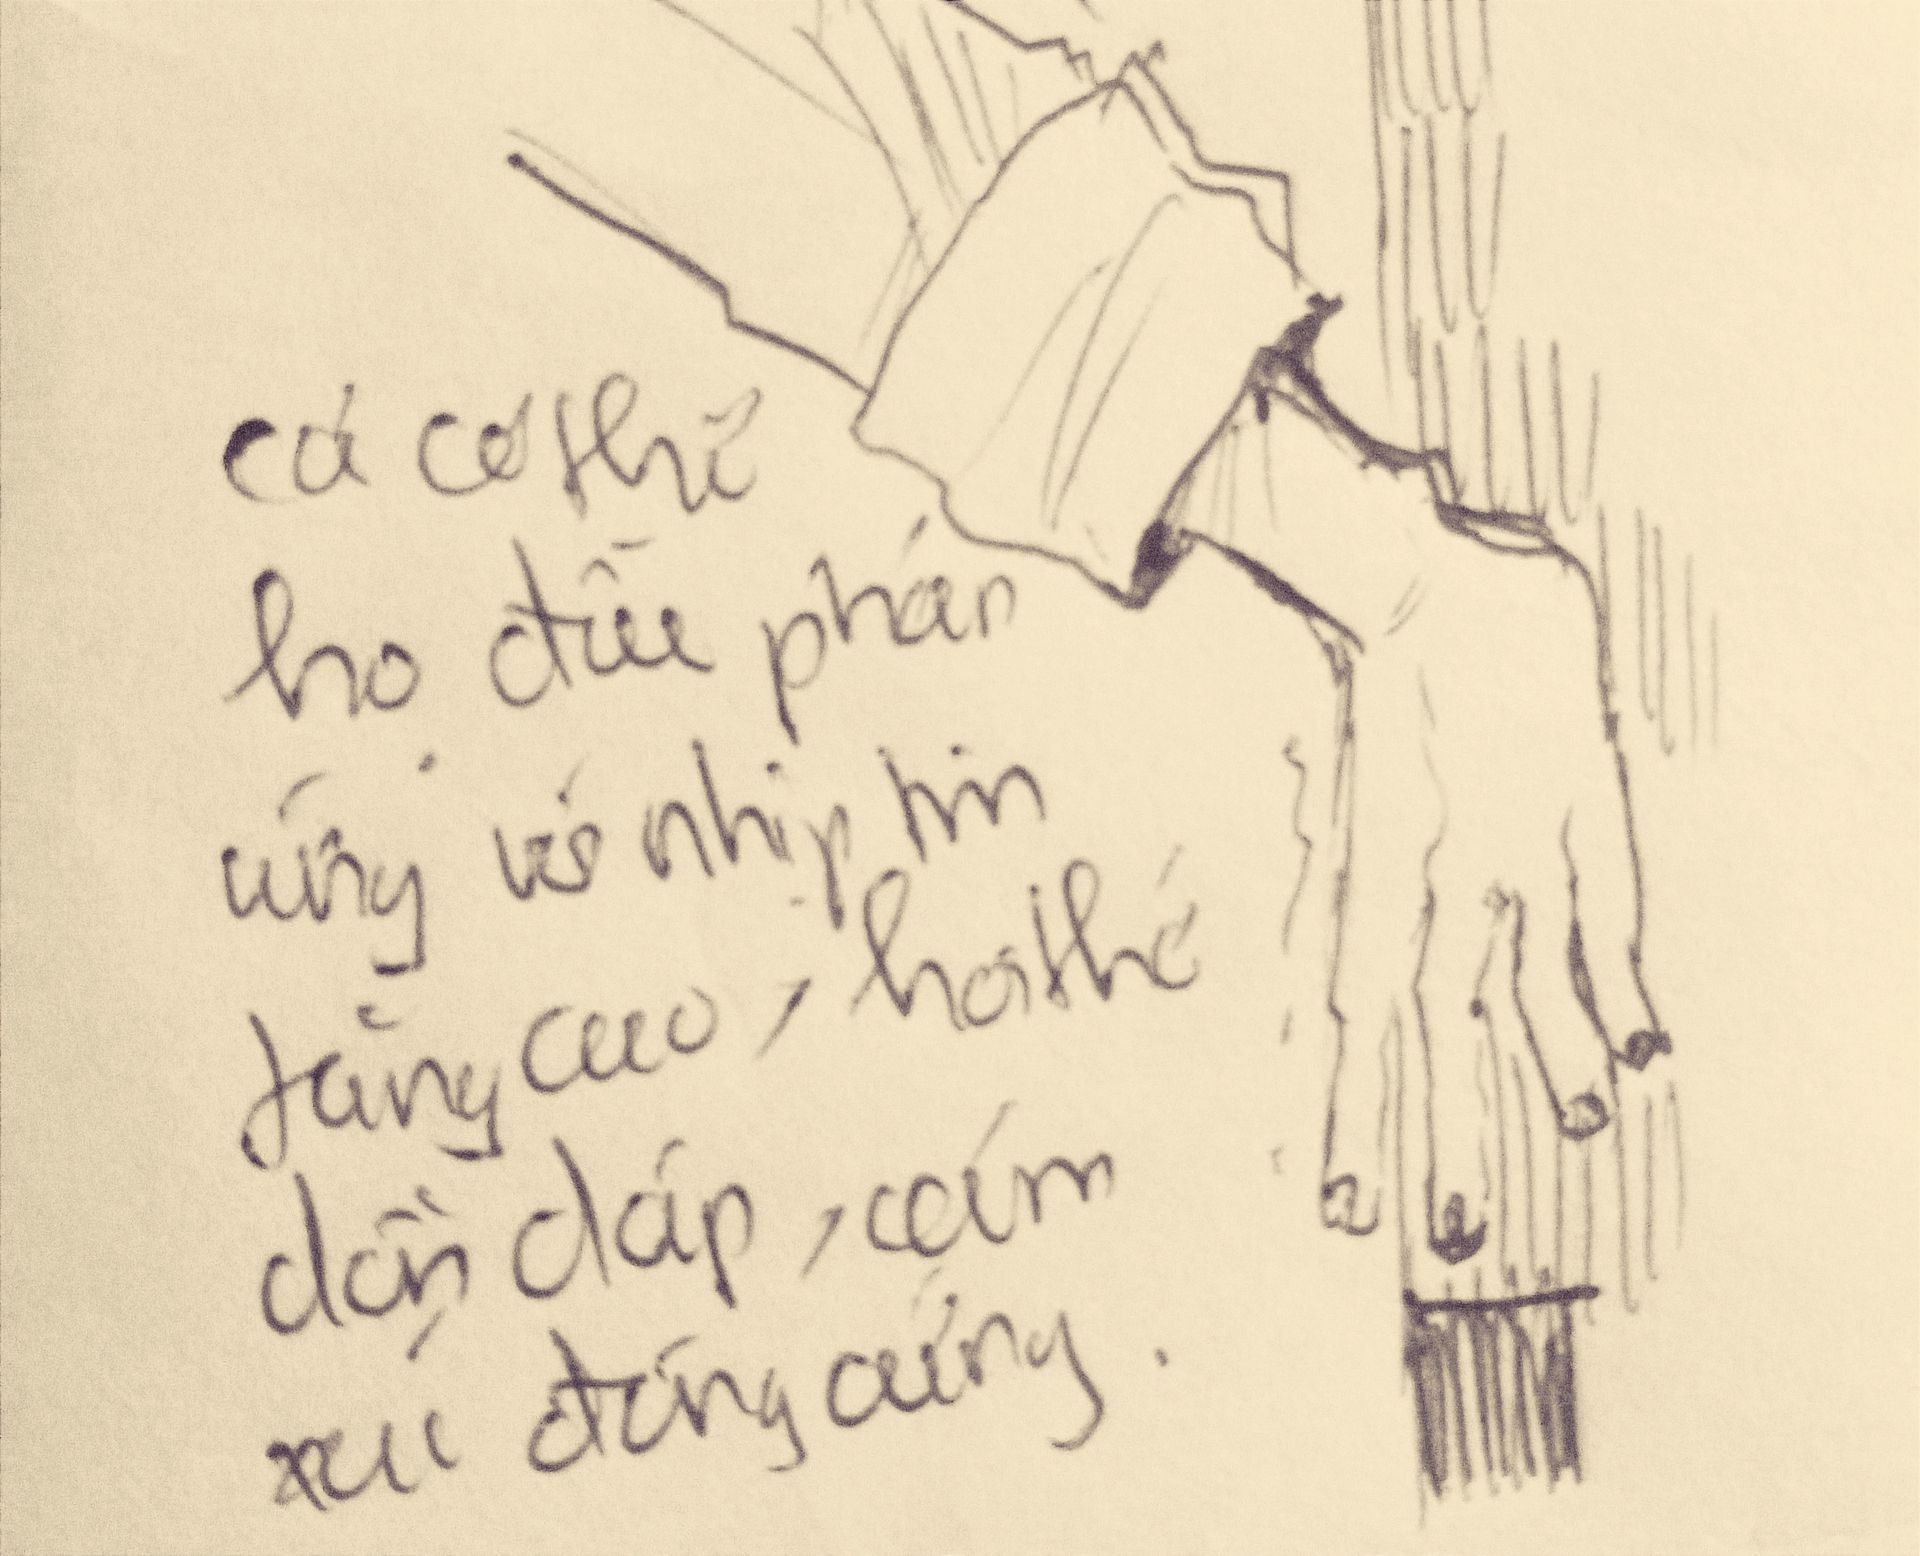 cả cơ thể
họ đều phản
ứng với nhịp tim
tăng cao, hơi thở
dồn dập, cảm
xúc đông cứng.